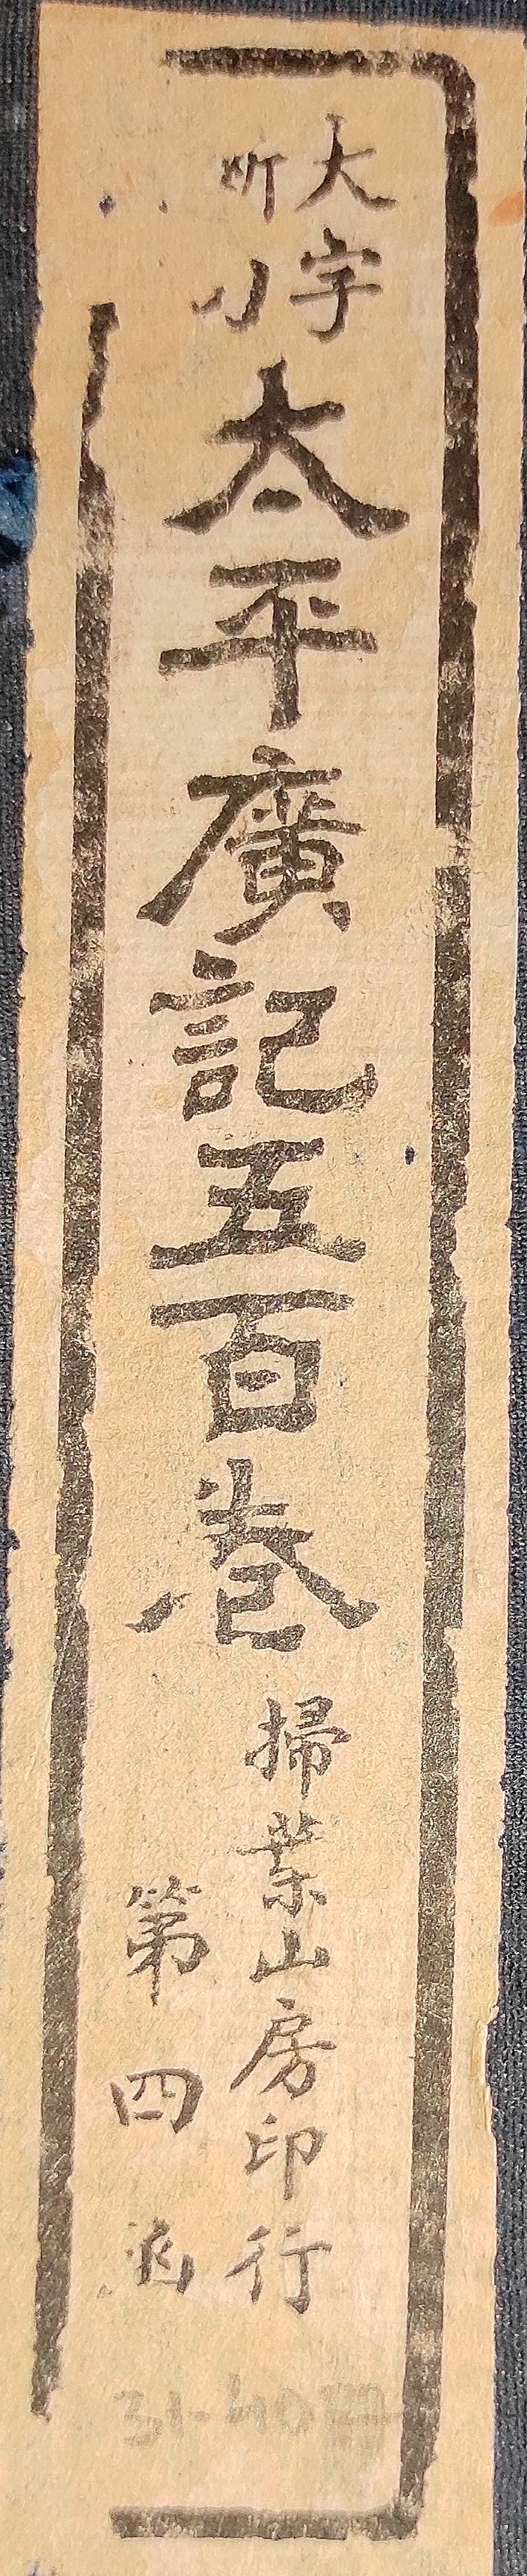 大字
太平廣記五百卷
掃葉山房印行
第四函
31-40冊